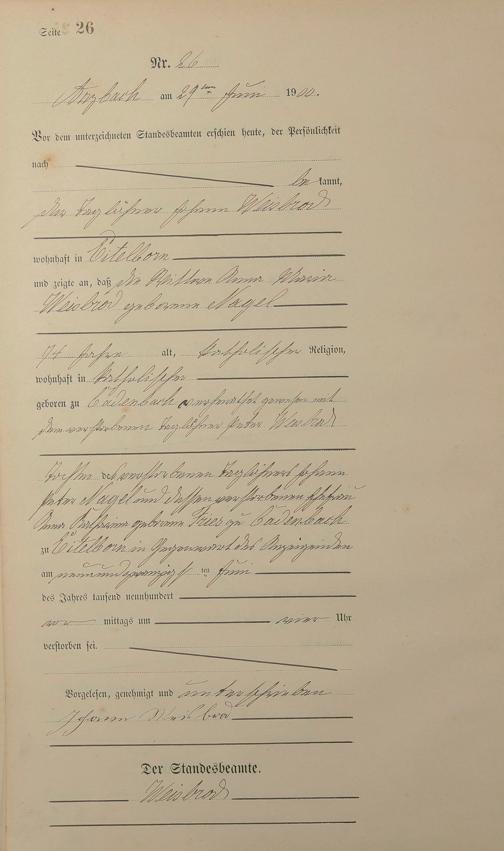 Seite 26
Nr. 26
Arzbach am 29ten Juni 1900.
Vor dem unterzeichneten Standesbeamten erschien heute, der Persönlichkeit
nach
be kannt,
der Taglöhner Johann Weisbrod
wohnhaft in Eitelborn
und zeigte an, daß die Wittwe Anna Maria
Weisbrod geborene Nagel
74 Jahre alt, katholischer Religion,
wohnhaft in katholischer
geboren zu Cadenbach verheirathet gewesen mit
dem verstorbenen Taglöhner Peter Weisbrod
Tochter des verstorbenen Taglöhners Johann
Peter Nagel und dessen verstorbenen Ehefrau
Anna geborene Fries zu Cadenbach
zu Eitelborn in Gegenwart des Anzeigenden
am neunundzwanzigsten Juni
des Jahres tausend neunhundert
vor mittags um vier Uhr
verstorben sei.
Vorgelesen, genehmigt und unterschrieben
Johann Weisbrod
Der Standesbeamte.
Weisbrod